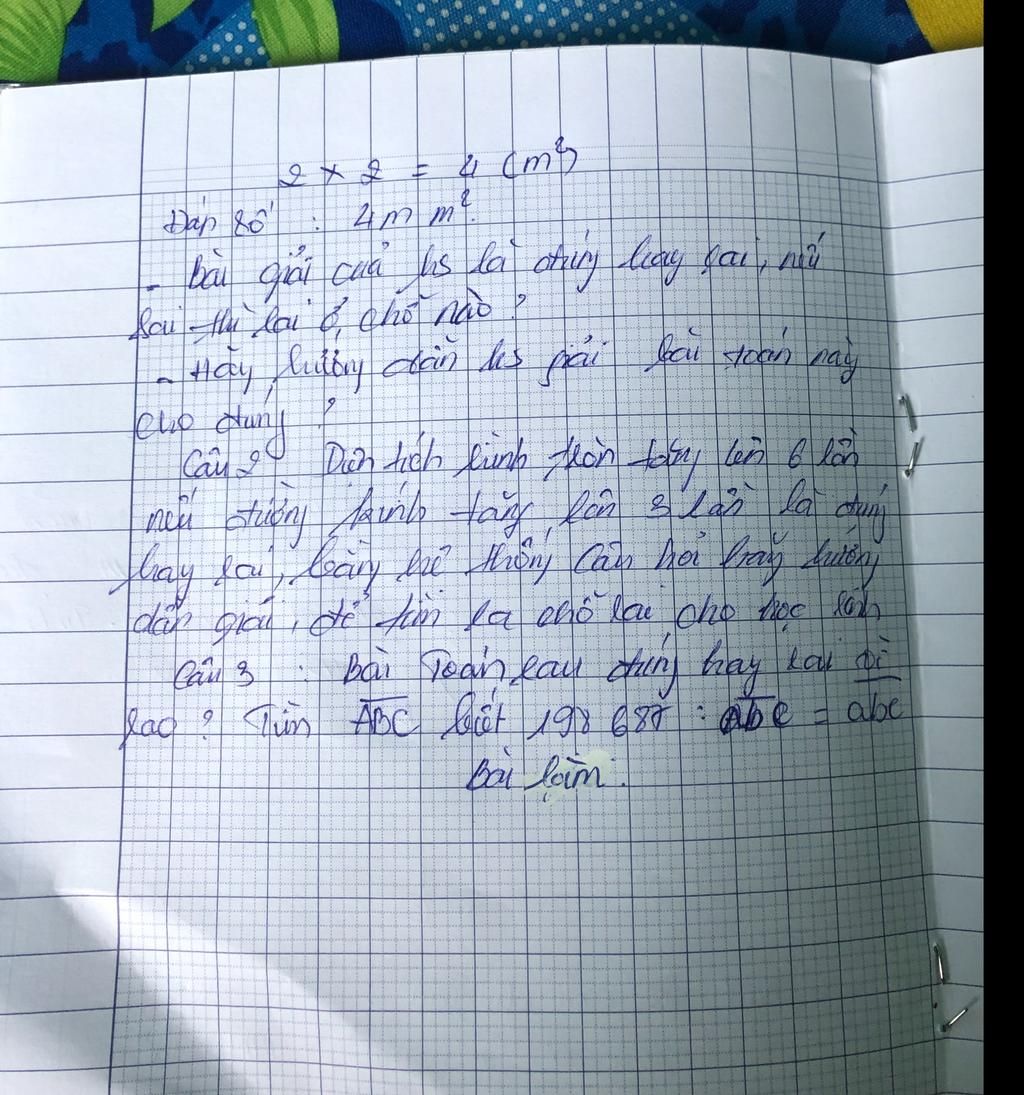 2 × 2 = 4 (m²)
Đáp số : 4m m².
- Bài giải của hs là đúng hay sai, nếu
sai thì sai ở chỗ nào ?
- Hãy hướng dẫn hs giải bài toán này
cho đúng ?
Câu 2 Diện tích hình tròn tăng lên 6 lần
nếu đường kính tăng lên 3 lần là đúng
hay sai, bằng hệ thống câu hỏi hãy hướng
dẫn giải, để tìm ra chỗ sai cho học sinh
Câu 3 : Bài Toán sau đúng hay sai Vì
sao ? Tìm ABC biết 198 687 : abc = abc
Bài làm.